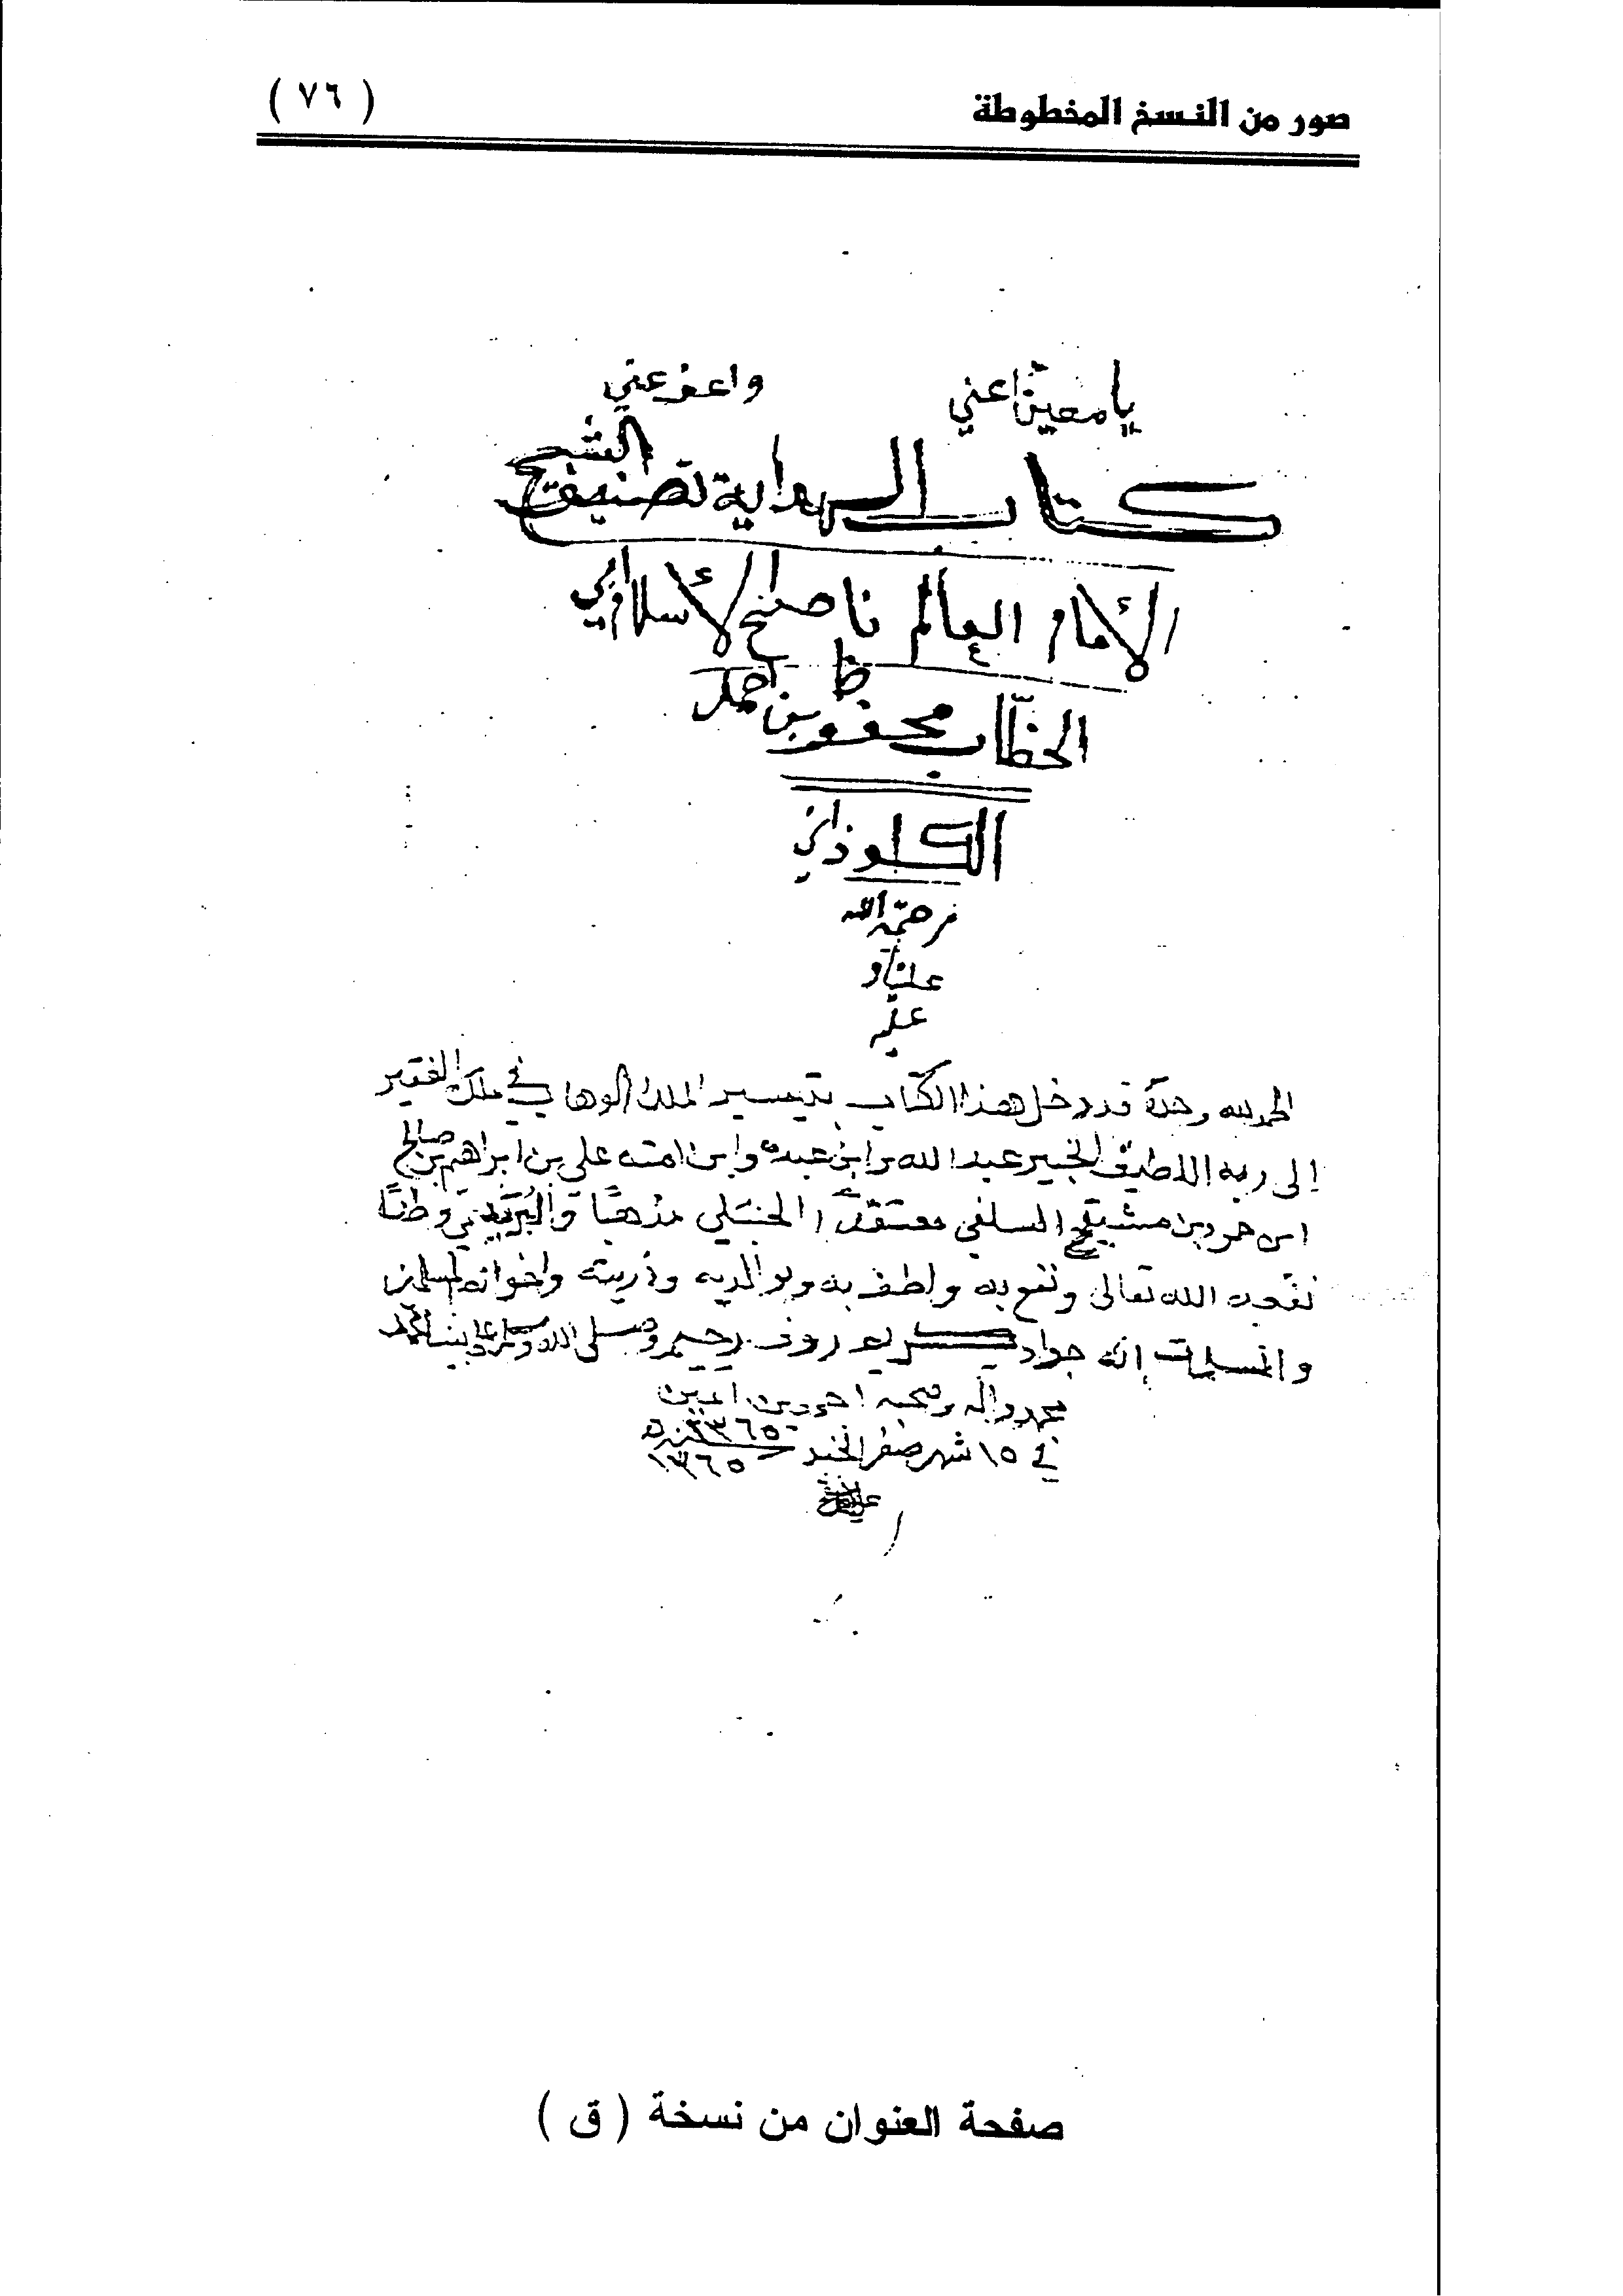 صور من النسخ المخطوطة ( ٧٦ )
يا معين اعني واعف عني
كتاب الهداية تصنيف الشيخ
الإمام العالم ناصح الإسلام ابي
الخطاب محفوظ بن احمد
الكلوذاني
رحمة الله
علينا و
عليه
الحمد لله وحده قد دخل هذا الكتاب بتيسير الملك الوهاب في ملك الفقير
إلى ربه اللطيف الخبير عبد الله وابن عبده وابن امته علي بن ابراهيم بن صالح
ابن حمود بن مشيقح السلفي معتقدًا الحنبلي مذهبًا والبُريدي وطنًا
نفعه الله تعالى ونفع به ولطف به وبوالديه وذريته واخوانه المسلمين
والمسلمات إنه جواد كريم رؤف رحيم وصلى الله وسلم على نبينا
محمد وآله وصحبه اجمعين امين
في ١٥ شهر صفر الخير سنة ١٣٦٥
١٣٦٥
صفحة العنوان من نسخة ( ق )